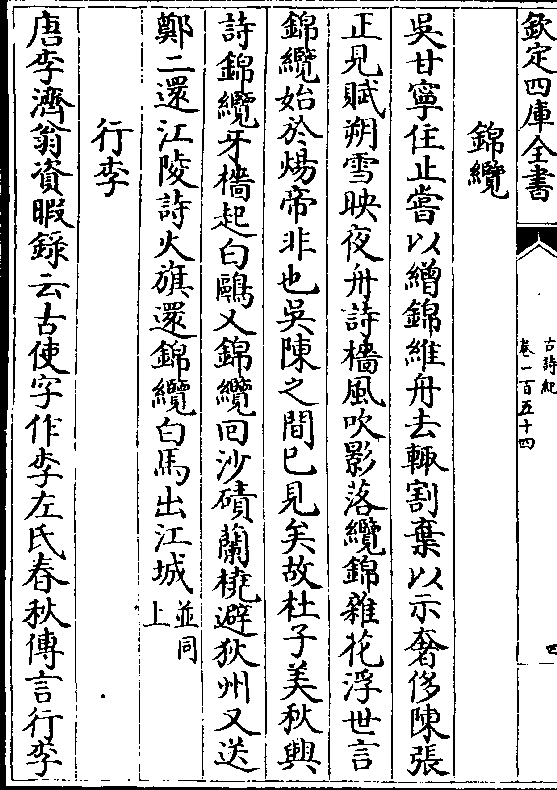 欽定四庫全書
古詩紀
卷一百五十四
四
錦纜
吳甘寧住止嘗以繒錦維舟去輙割棄以示奢侈陳張
正見賦朔雪映夜舟詩檣風吹影落纜錦雜花浮世言
錦纜始於煬帝非也吳陳之間已見矣故杜子美秋興
詩錦纜牙檣起白鷗又錦纜回沙磧蘭橈避荻州又送
鄭二還江陵詩火旗還錦纜白馬出江城並同上
行李
唐李濟翁資暇錄云古使字作李左氏春秋傳言行李